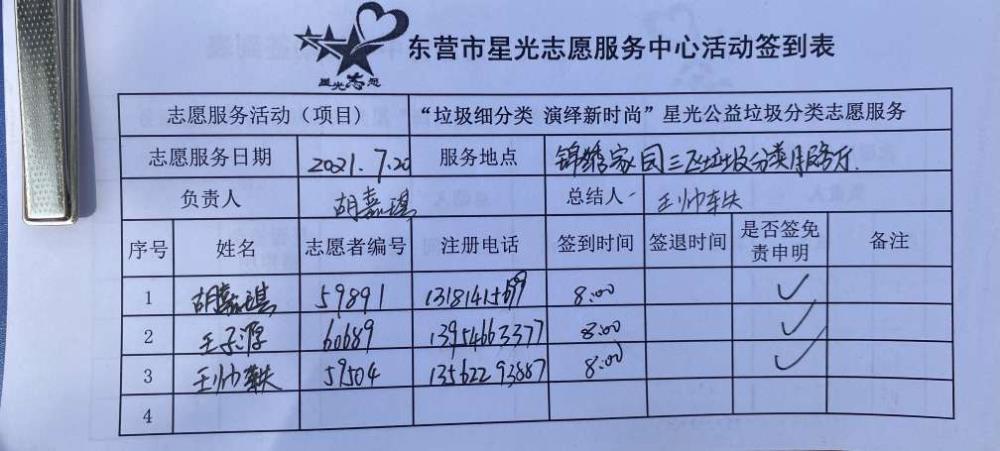 星光志愿
东营市星光志愿服务中心活动签到表
志愿服务活动（项目） “垃圾细分类 演绎新时尚”星光公益垃圾分类志愿服务
志愿服务日期 2021.7.20 服务地点 锦绣家园三区垃圾分类服务厅
负责人 胡嘉琪 总结人 王帅轶
序号 姓名 志愿者编号 注册电话 签到时间 签退时间 是否签免责申明 备注
1 胡嘉琪 59891 8:00 ✓
2 王子源 60689 13954663377 8:00 ✓
3 王帅轶 59504 8:00 ✓
4